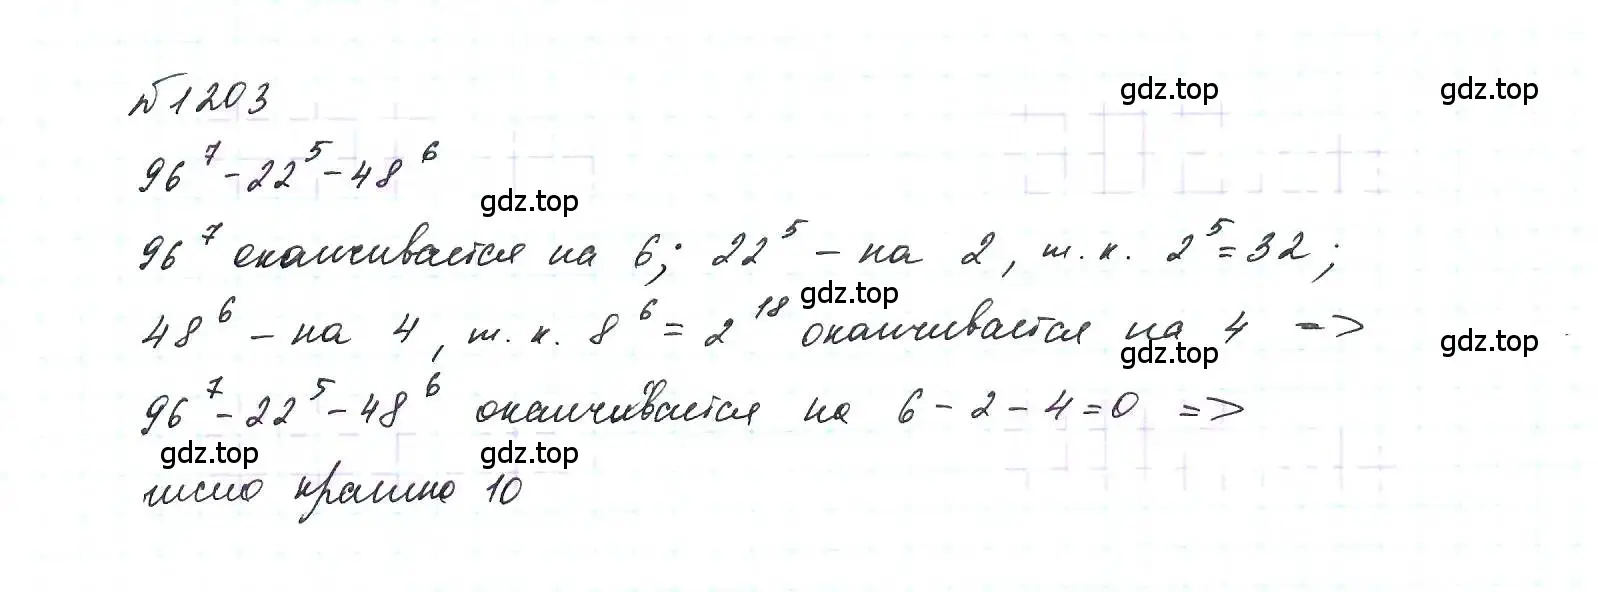 №1203
gdz.top gdz.top
96⁷ - 22⁵ - 48⁶
gdz.top
96⁷ оканчивается на 6; 22⁵ – на 2, т. к. 2⁵ = 32;
gdz.top
48⁶ – на 4, т. к. 8⁶ = 2¹⁸ оканчивается на 4 =>
gdz.top gdz.top
96⁷ - 22⁵ - 48⁶ оканчивается на 6 - 2 - 4 = 0 =>
gdz.top gdz.top
число кратно 10